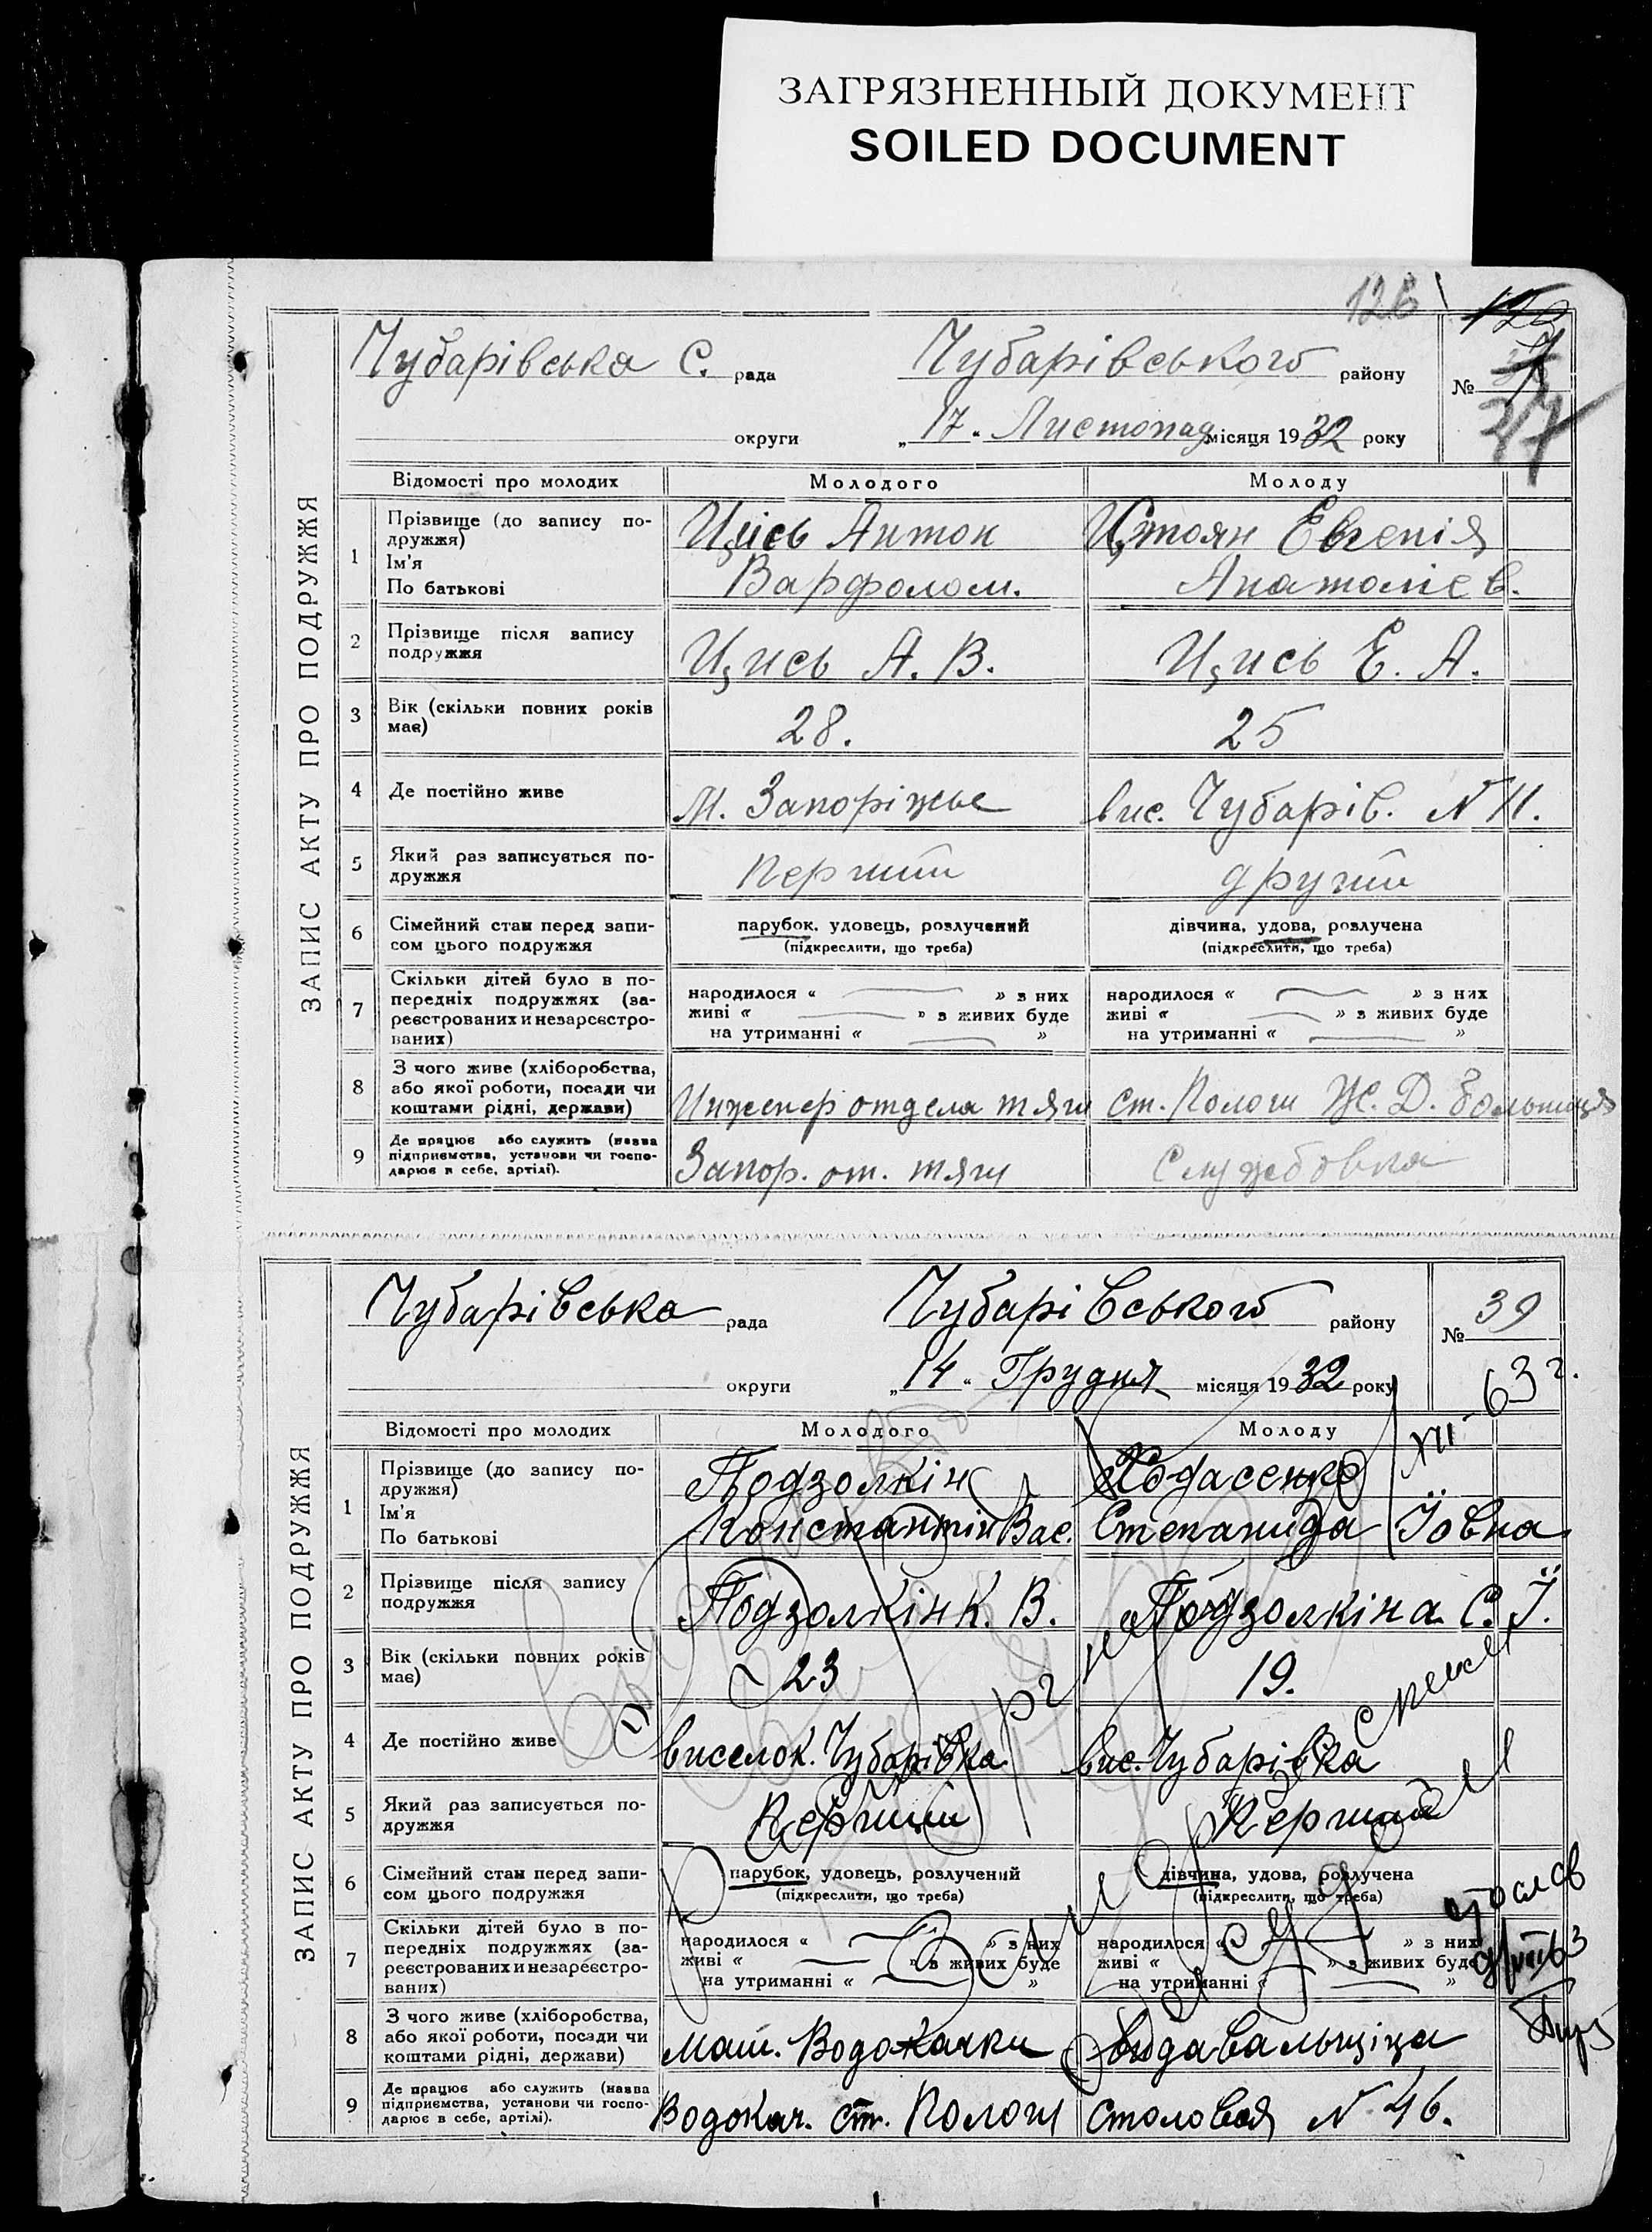 ЗАГРЯЗНЕННЫЙ ДОКУМЕНТ
SOILED DOCUMENT
126
ЗАПИС АКТУ ПРО ПОДРУЖЖЯ
Чубарівська С. рада Чубарівського району №
37
округи „17“ Листопад місяця 1932 року
Відомості про молодих Молодого Молоду
1 Прізвище (до запису подружжя) Ім'я По батькові
Цись Антон Варфолом.
Стоян Евгенія Анатоліев.
2 Прізвище після запису подружжя Цись А. В. Цись Е. А.
3 Вік (скільки повних років має) 28. 25
4 Де постійно живе М. Запоріжье вис. Чубарів. N 11.
5 Який раз записується подружжя Перший другий
6 Сімейний стан перед записом цього подружжя парубок, удовець, розлучений дівчина, удова, розлучена
(підкреслити, що треба) (підкреслити, що треба)
7 Скільки дітей було в попередніх подружжях (зареєстрованих и незареєстрованих)
народилося « » з них народилося « » з них
живі « » з живих буде живі « » з живих буде
на утриманні « » на утриманні « »
8 З чого живе (хліборобства, або якої роботи, посади чи коштами рідні, держави) Инженер отдела тяги ст. Пологи Ж. Д. Больница
9 Де працює або служить (назва підприємства, установи чи господарює в себе, артілі). Запор. от. тяги Службовка
ЗАПИС АКТУ ПРО ПОДРУЖЖЯ
Чубарівська рада Чубарівського району № 39
округи „14“ Грудня місяця 1932 року
63 г.
XII
Відомості про молодих Молодого Молоду
1 Прізвище (до запису подружжя) Ім'я По батькові
Подзолкін Константін Вас.
Степанида Йовна
2 Прізвище після запису подружжя Подзолкін К. В. Подзолкіна С. Й.
3 Вік (скільки повних років має) 23 19.
4 Де постійно живе виселок. Чубарівка вис. Чубарівка
5 Який раз записується подружжя Перший Перший
6 Сімейний стан перед записом цього подружжя парубок, удовець, розлучений дівчина, удова, розлучена
(підкреслити, що треба) (підкреслити, що треба)
7 Скільки дітей було в попередніх подружжях (зареєстрованих и незареєстрованих)
народилося « » з них народилося « » з них
живі « » з живих буде живі « » з живих буде
на утриманні « » на утриманні « »
8 З чого живе (хліборобства, або якої роботи, посади чи коштами рідні, держави) маш. Водокачки видавальщіца
9 Де працює або служить (назва підприємства, установи чи господарює в себе, артілі). Водокач. ст. Пологи столовая N 46.